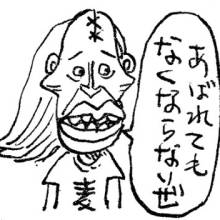 あばれても
なくならないぜ
麦